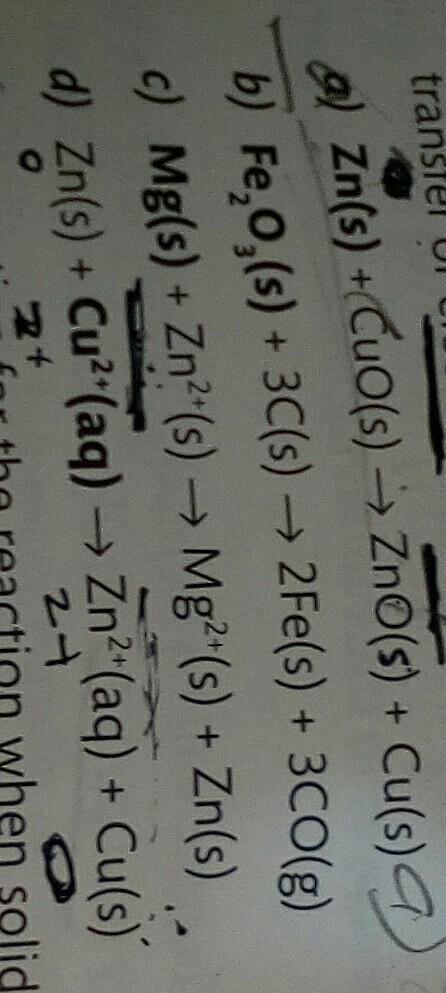 transfer of
a) Zn(s) + CuO(s) → ZnO(s) + Cu(s)
b) Fe₂O₃(s) + 3C(s) → 2Fe(s) + 3CO(g)
c) Mg(s) + Zn²⁺(s) → Mg²⁺(s) + Zn(s)
d) Zn(s) + Cu²⁺(aq) → Zn²⁺(aq) + Cu(s)
0 2+ 2+ 0
for the reaction when solid